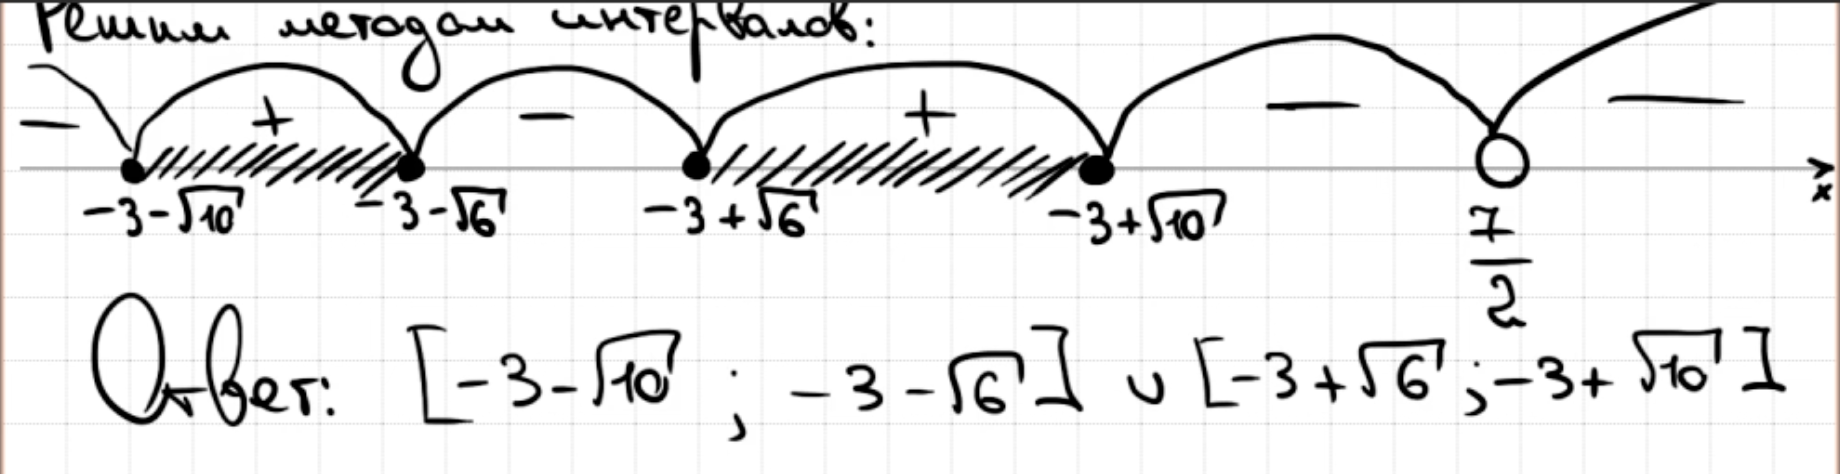 Решим методом интервалов:
− + − + − −
−3−√10 −3−√6 −3+√6 −3+√10 7/2 x
Ответ: [−3−√10 ; −3−√6] ∪ [−3+√6 ; −3+√10]